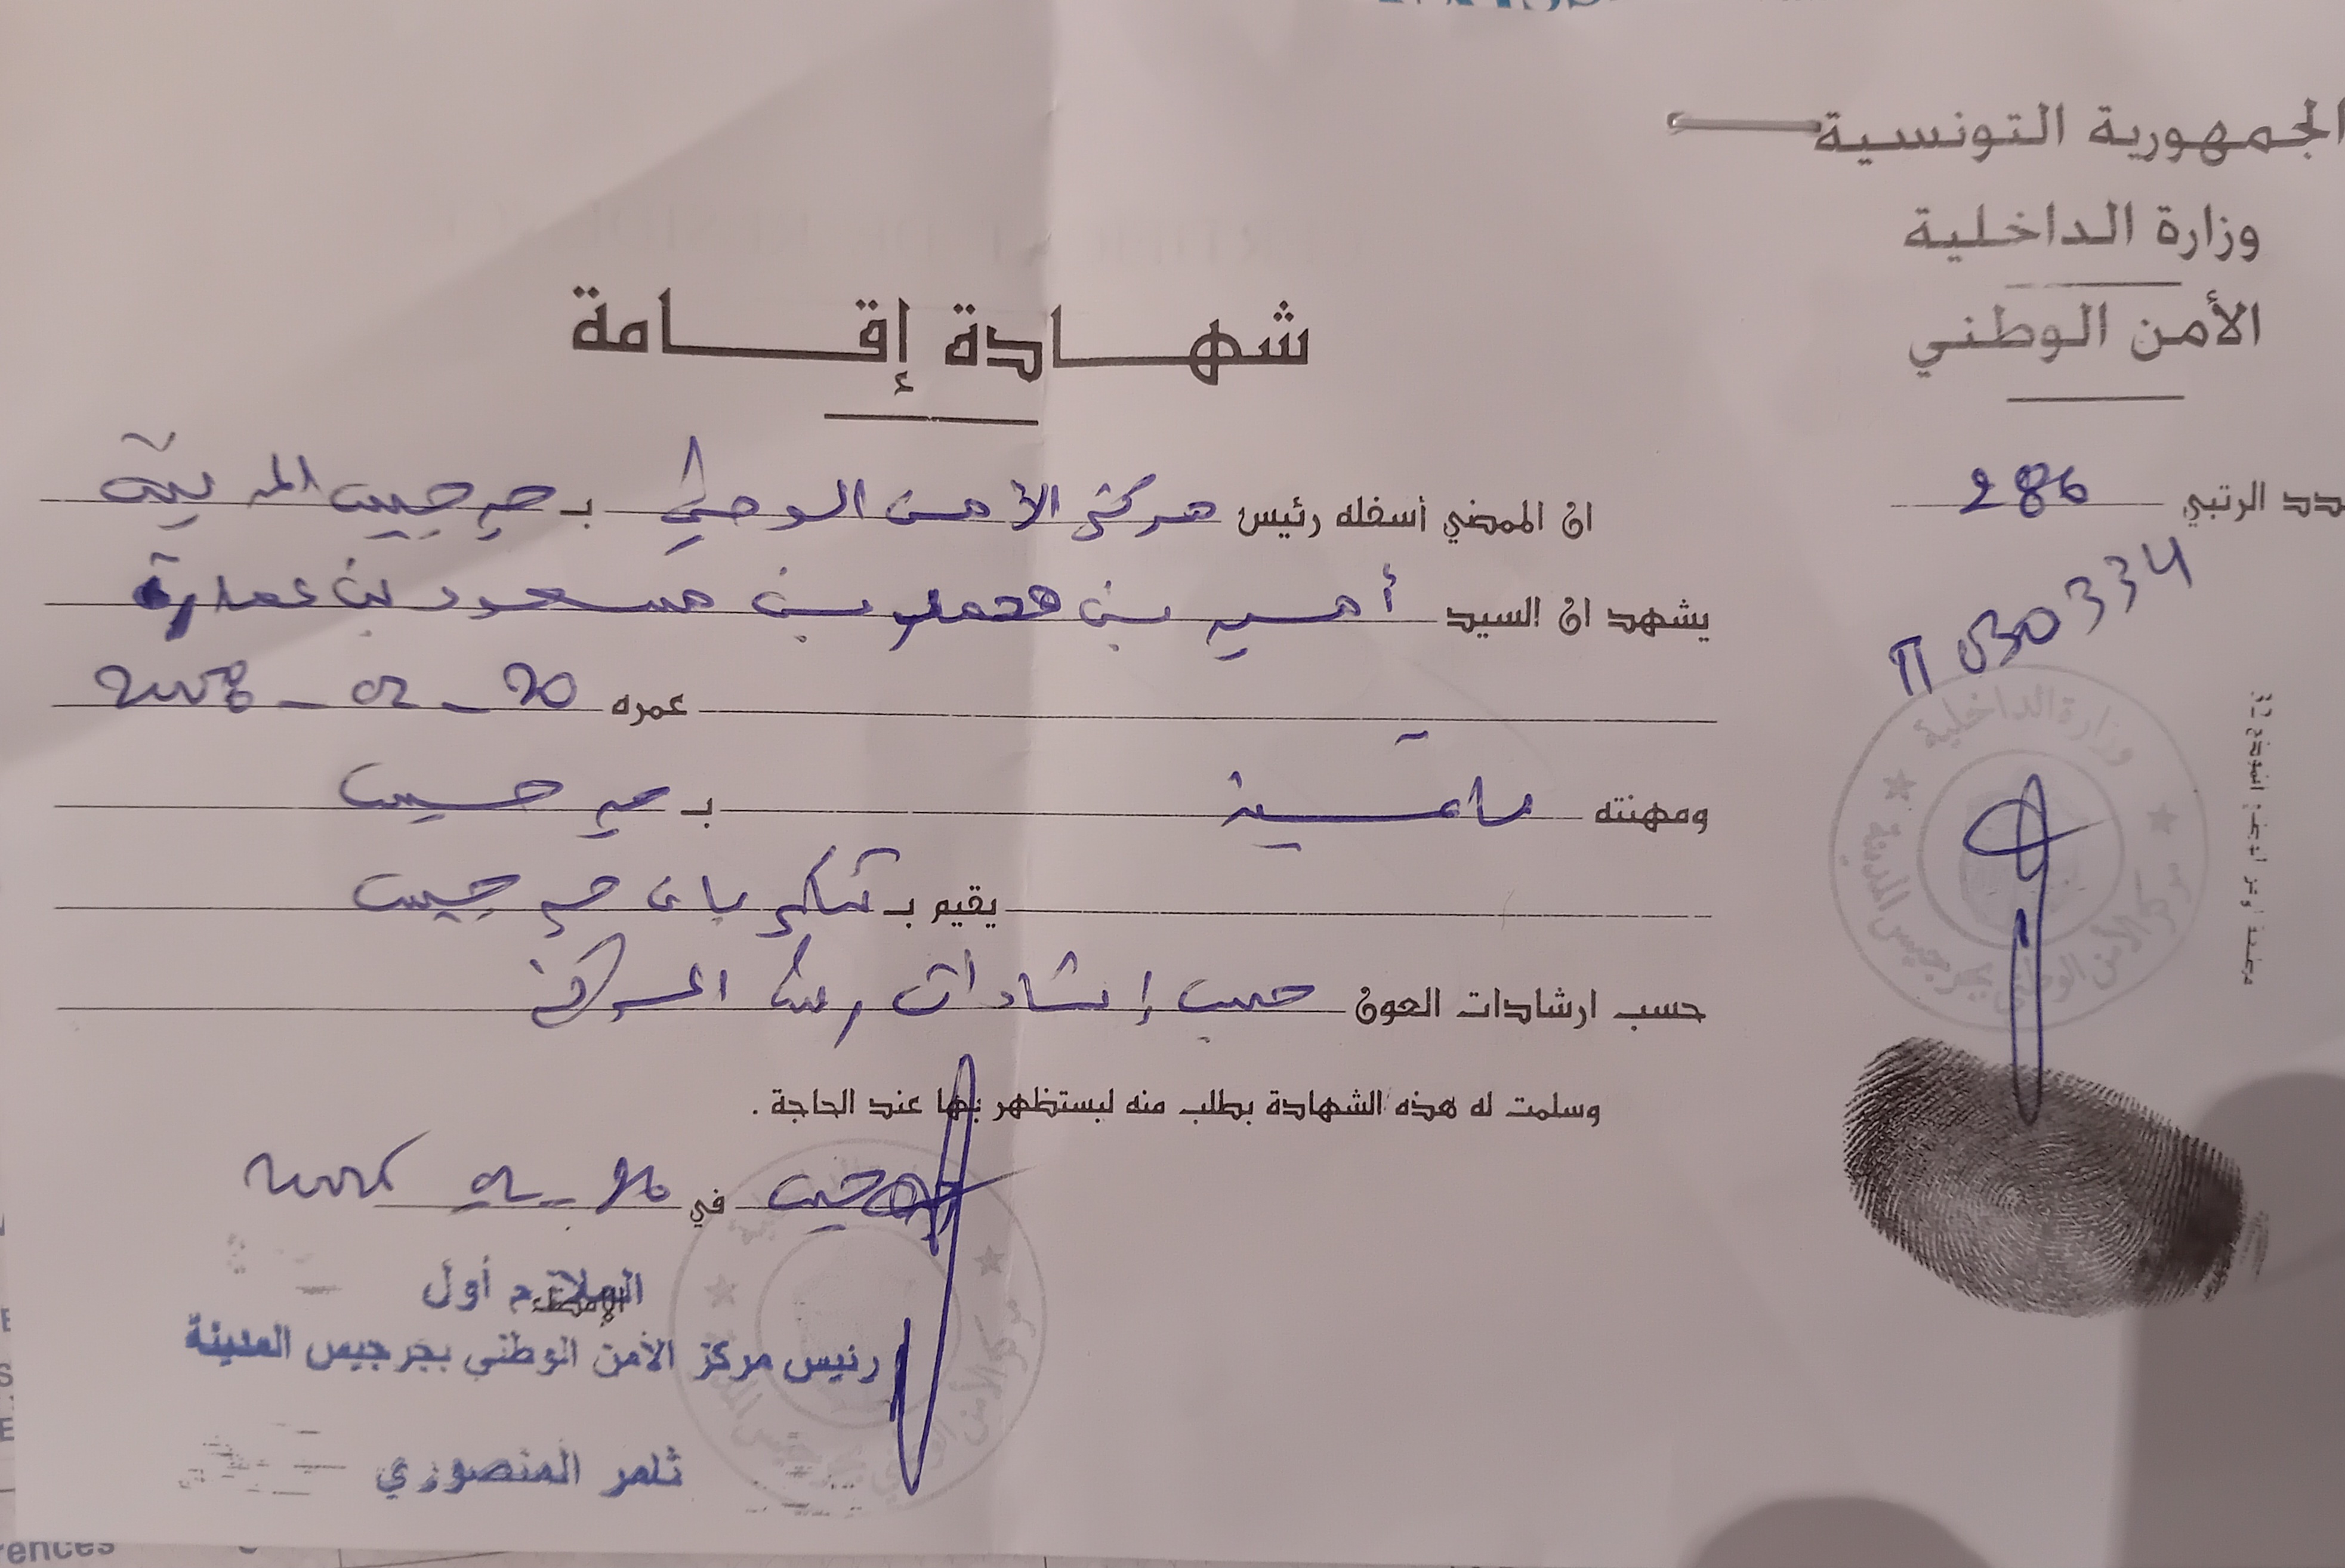 الجمهورية التونسية
وزارة الداخلية
الأمن الوطني
شهادة إقامة
عدد الرتبي 286
11030334
ان الممضي أسفله رئيس مركز الأمن الوطني بـ جرجيس المدينة
يشهد ان السيد أمير بن محمد بن مسعود بن عمارة
عمره 20 - 02 - 2008
ومهنته بـ جرجيس
يقيم بـ جرجيس
حسب ارشادات العون حسب إرشادات المركز
وسلمت له هذه الشهادة بطلب منه ليستظهر بها عند الحاجة .
جرجيس في
الإمضاء
الملازم أول
رئيس مركز الأمن الوطني بجرجيس المدينة
ثامر المنصوري
وزارة الداخلية
مركز الأمن الوطني بجرجيس المدينة